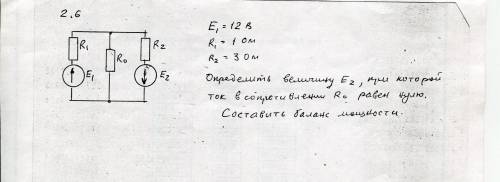 2.6
R₁ R₀ R₂
E₁ E₂
E₁ = 12 В
R₁ = 1 Ом
R₂ = 3 Ом
Определить величину E₂, при которой
ток в сопротивлении R₀ равен нулю.
Составить баланс мощности.